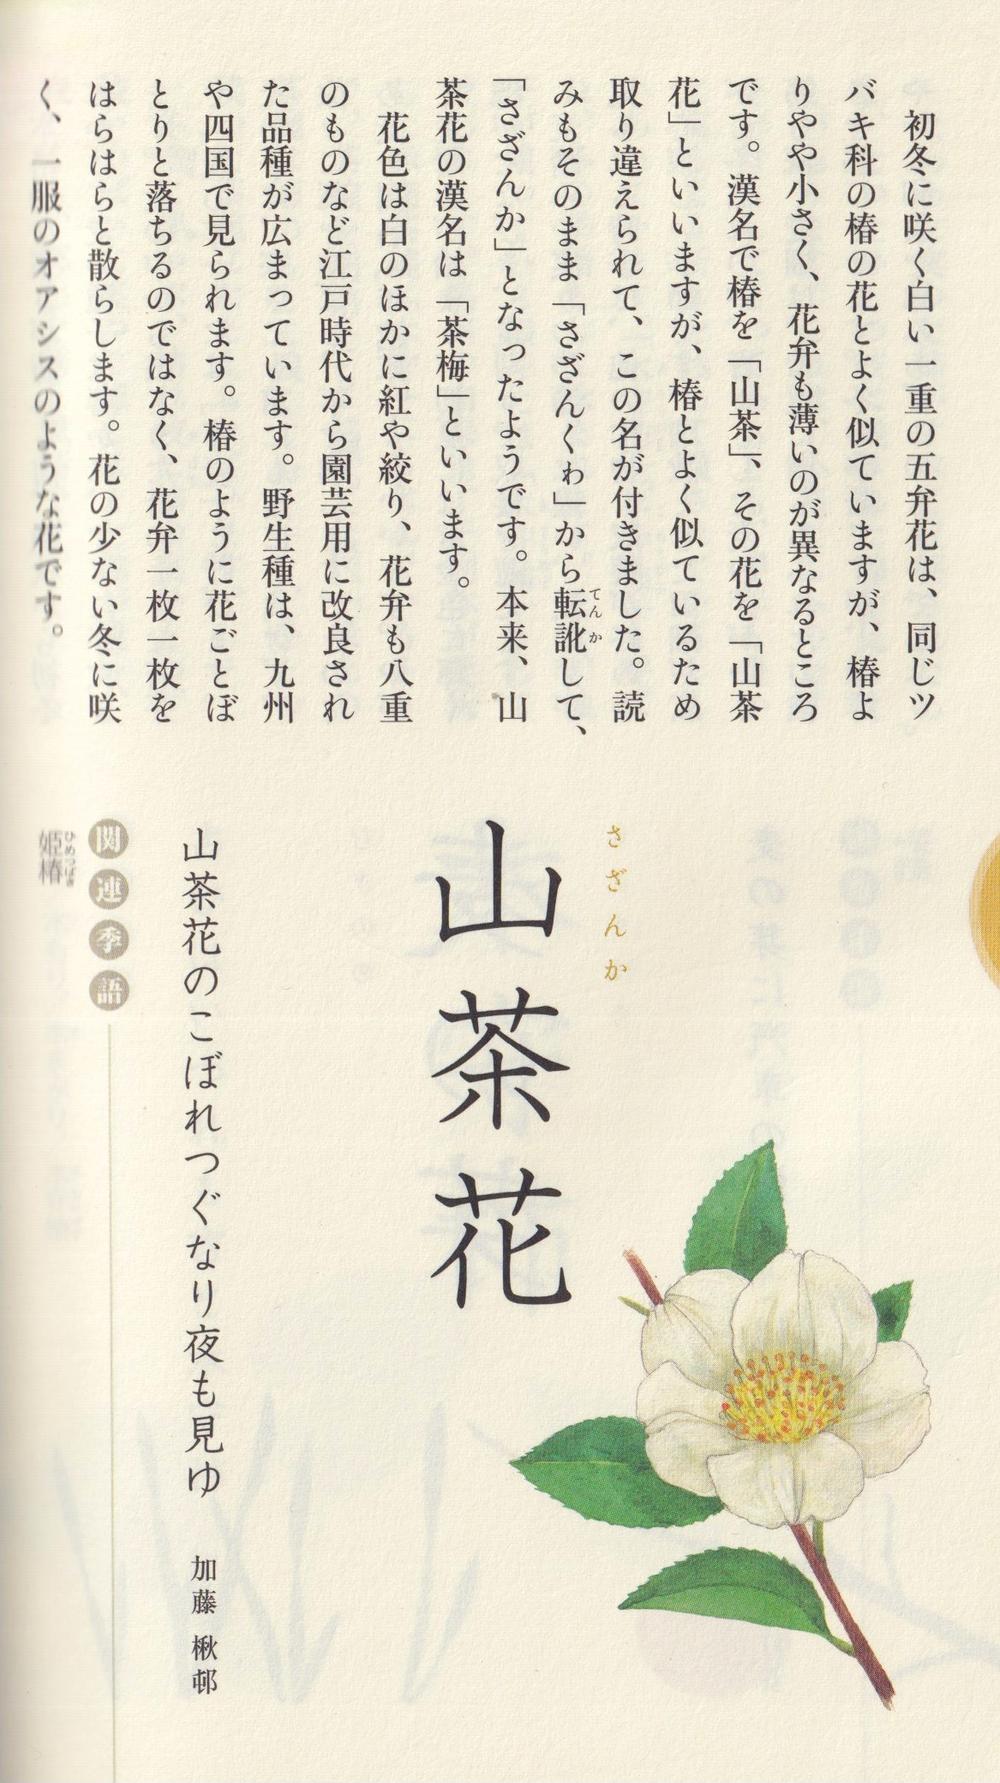 初冬に咲く白い一重の五弁花は、同じツ
バキ科の椿の花とよく似ていますが、椿よ
りやや小さく、花弁も薄いのが異なるところ
です。漢名で椿を「山茶」、その花を「山茶
花」といいますが、椿とよく似ているため
取り違えられて、この名が付きました。読
みもそのまま「さざんくゎ」から転訛して、
てんか
「さざんか」となったようです。本来、山
茶花の漢名は「茶梅」といいます。
花色は白のほかに紅や絞り、花弁も八重
のものなど江戸時代から園芸用に改良され
た品種が広まっています。野生種は、九州
や四国で見られます。椿のように花ごとぼ
とりと落ちるのではなく、花弁一枚一枚を
はらはらと散らします。花の少ない冬に咲
く、一服のオアシスのような花です。
さざんか
山茶花
山茶花のこぼれつぐなり夜も見ゆ
加藤 楸邨
関連季語
姫椿
ひめつばき